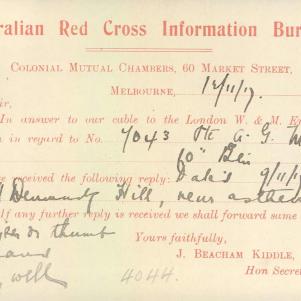 ralian Red Cross Information Bur
Colonial Mutual Chambers, 60 Market Street,
Melbourne, 12/11/17.
ir,
In answer to our cable to the London W. & M. E
n in regard to No. 7043 Pte A. G.
60th Btn
ve received the following reply: Dated 9/11/1
Hill,
If any further reply is received we shall forward same
thumb
Yours faithfully,
well
J. Beacham Kiddle,
4044.
Hon Secre